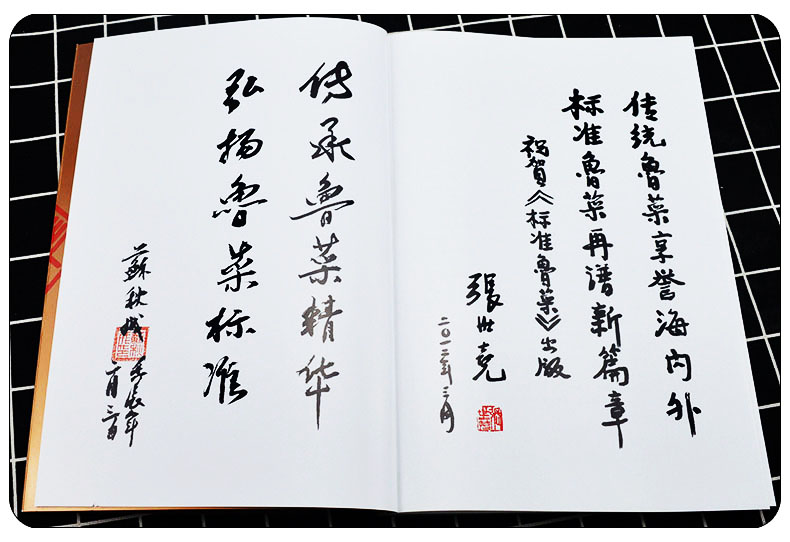 传承魯菜精华
弘扬魯菜标准
蘇秋成
壬辰年
传统魯菜享誉海内外
标准魯菜再谱新篇章
祝賀《标准魯菜》出版
張世尧
二〇一二年三月